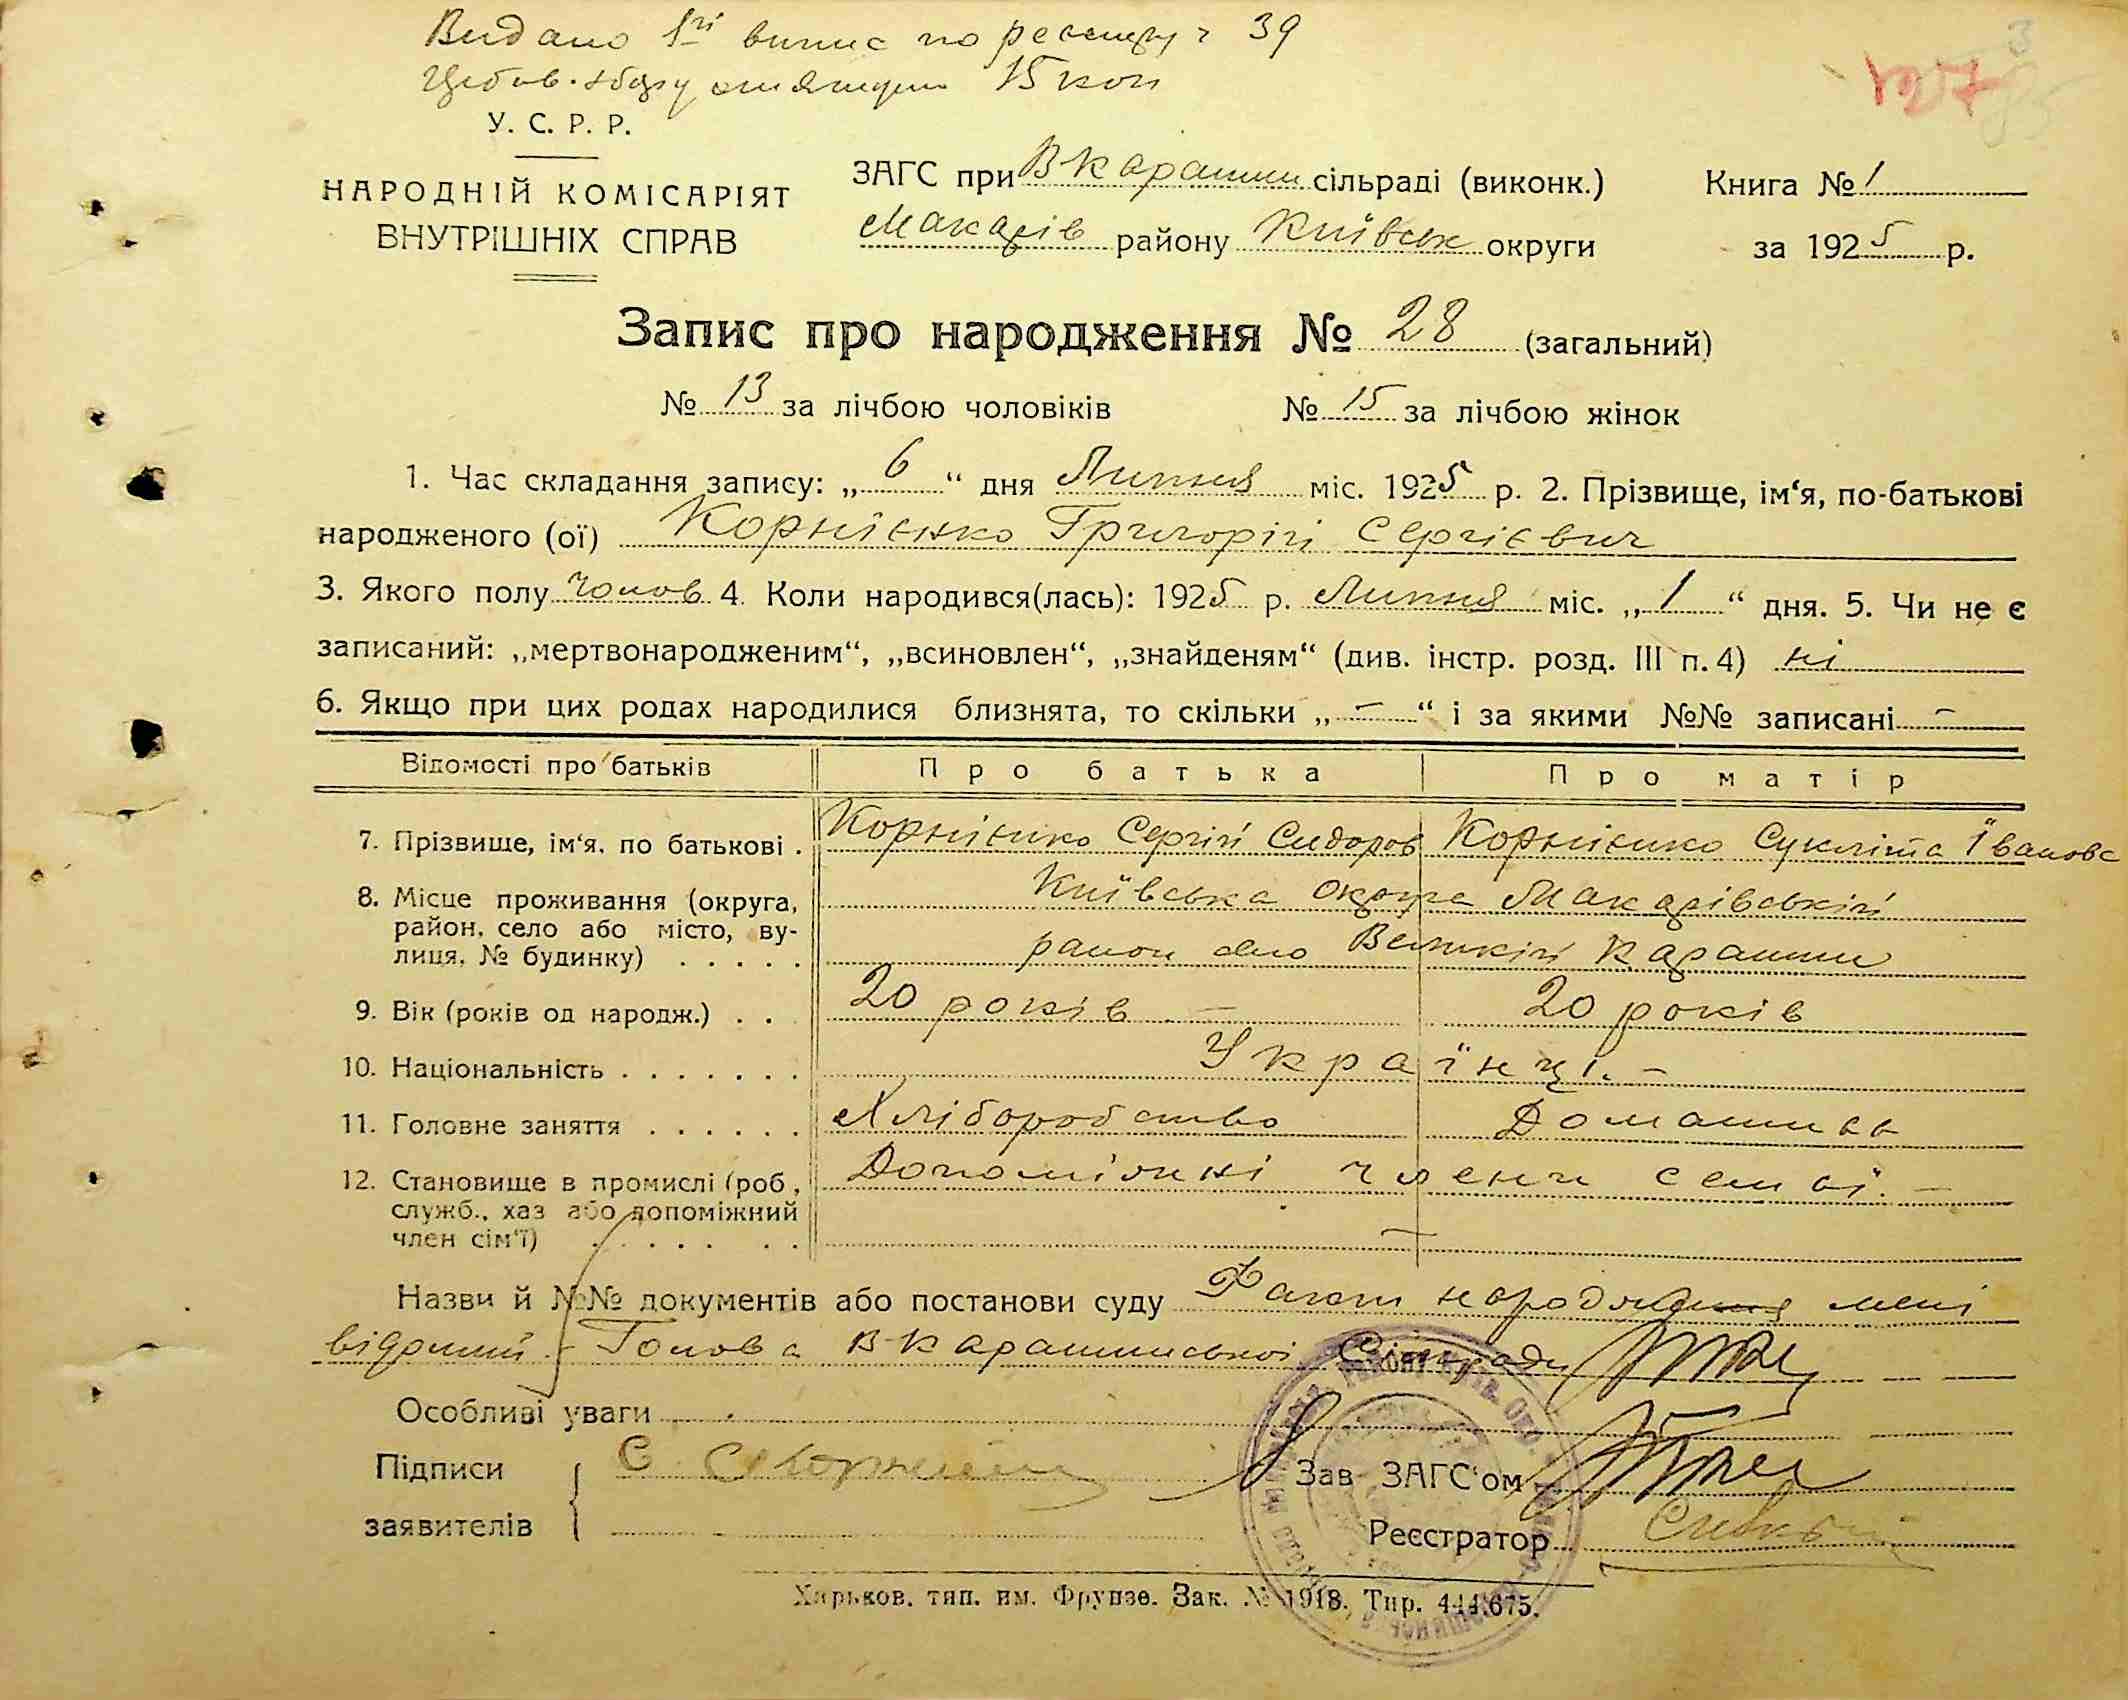 Видано 1ий випис по реєстру 39
15 коп
3
У. С. Р. Р.
НАРОДНІЙ КОМІСАРІЯТ
ВНУТРІШНІХ СПРАВ
ЗАГС при В Карашин сільраді (виконк.)
Макарів району Київськ округи
Книга № 1
за 1925 р.
Запис про народження № 28 (загальний)
№ 13 за лічбою чоловіків № 15 за лічбою жінок
1. Час складання запису: „ 6 “ дня Липня міс. 1925 р. 2. Прізвище, ім‘я, по-батькові
народженого (ої) Корнієнко Григорій Сергієвич
3. Якого полу чолов 4. Коли народився(лась): 1925 р. Липня міс. „ 1 “ дня. 5. Чи не є
записаний: „мертвонародженим“, „всиновлен“, „знайденям“ (див. інстр. розд. III п. 4) ні
6. Якщо при цих родах народилися близнята, то скільки „ — “ і за якими №№ записані —
Відомості про батьків Про батька Про матір
7. Прізвище, ім‘я, по батькові . Корнієнко Сергій Сидоров Корнієнко Івановa
8. Місце проживання (округа, Київська округа Макарівський
район, село або місто, ву-
лиця, № будинку) . . . . . район село Великій Карашин
9. Вік (років од народж.) . . 20 років — 20 років
10. Національність . . . . . . . Українці. —
11. Головне заняття . . . . . . Хліборобство Домашнє
12. Становище в промислі (роб., Допоміжні члени семьї. —
служб., хаз або допоміжний
член сім‘ї) . . . . . . . —
Назви й №№ документів або постанови суду Факт народження мені
відомий — Голова В-Карашинської Сільради
Особливі уваги
Підписи
заявителів
С.
Зав ЗАГС‘ом
Реєстратор
Харьков. тип. им. Фрунзе. Зак. № 1918. Тир. 444.675.